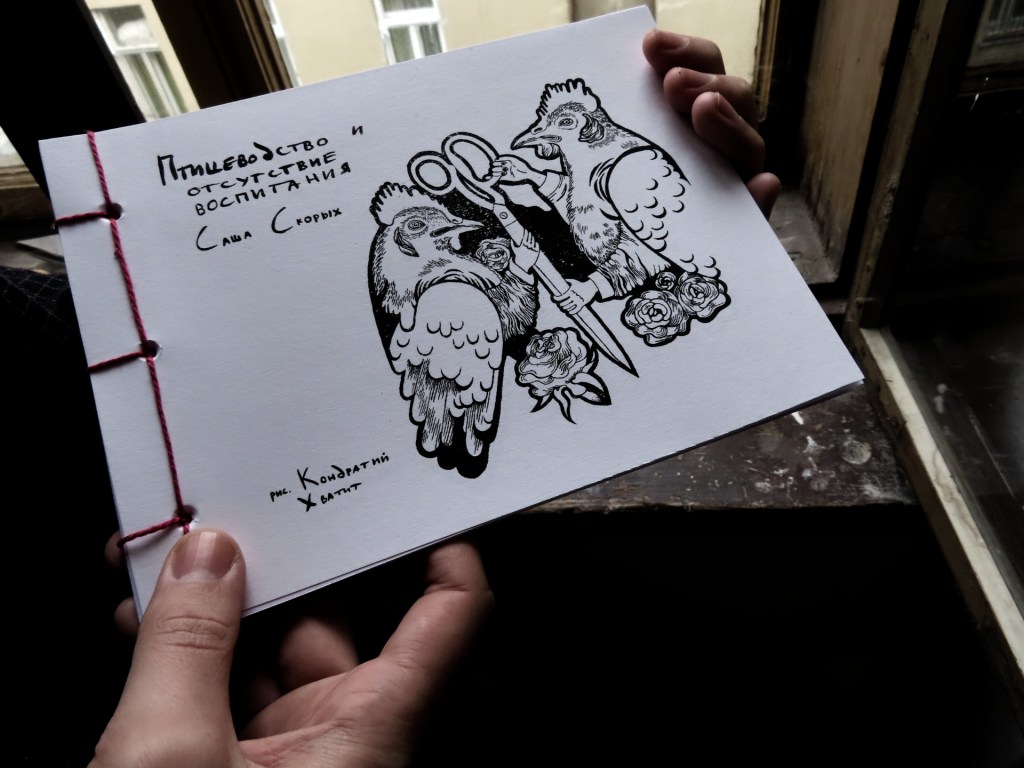 Птицеводство и
отсутствие
воспитания
Саша Скорых
рис. Кондратий
Хватит